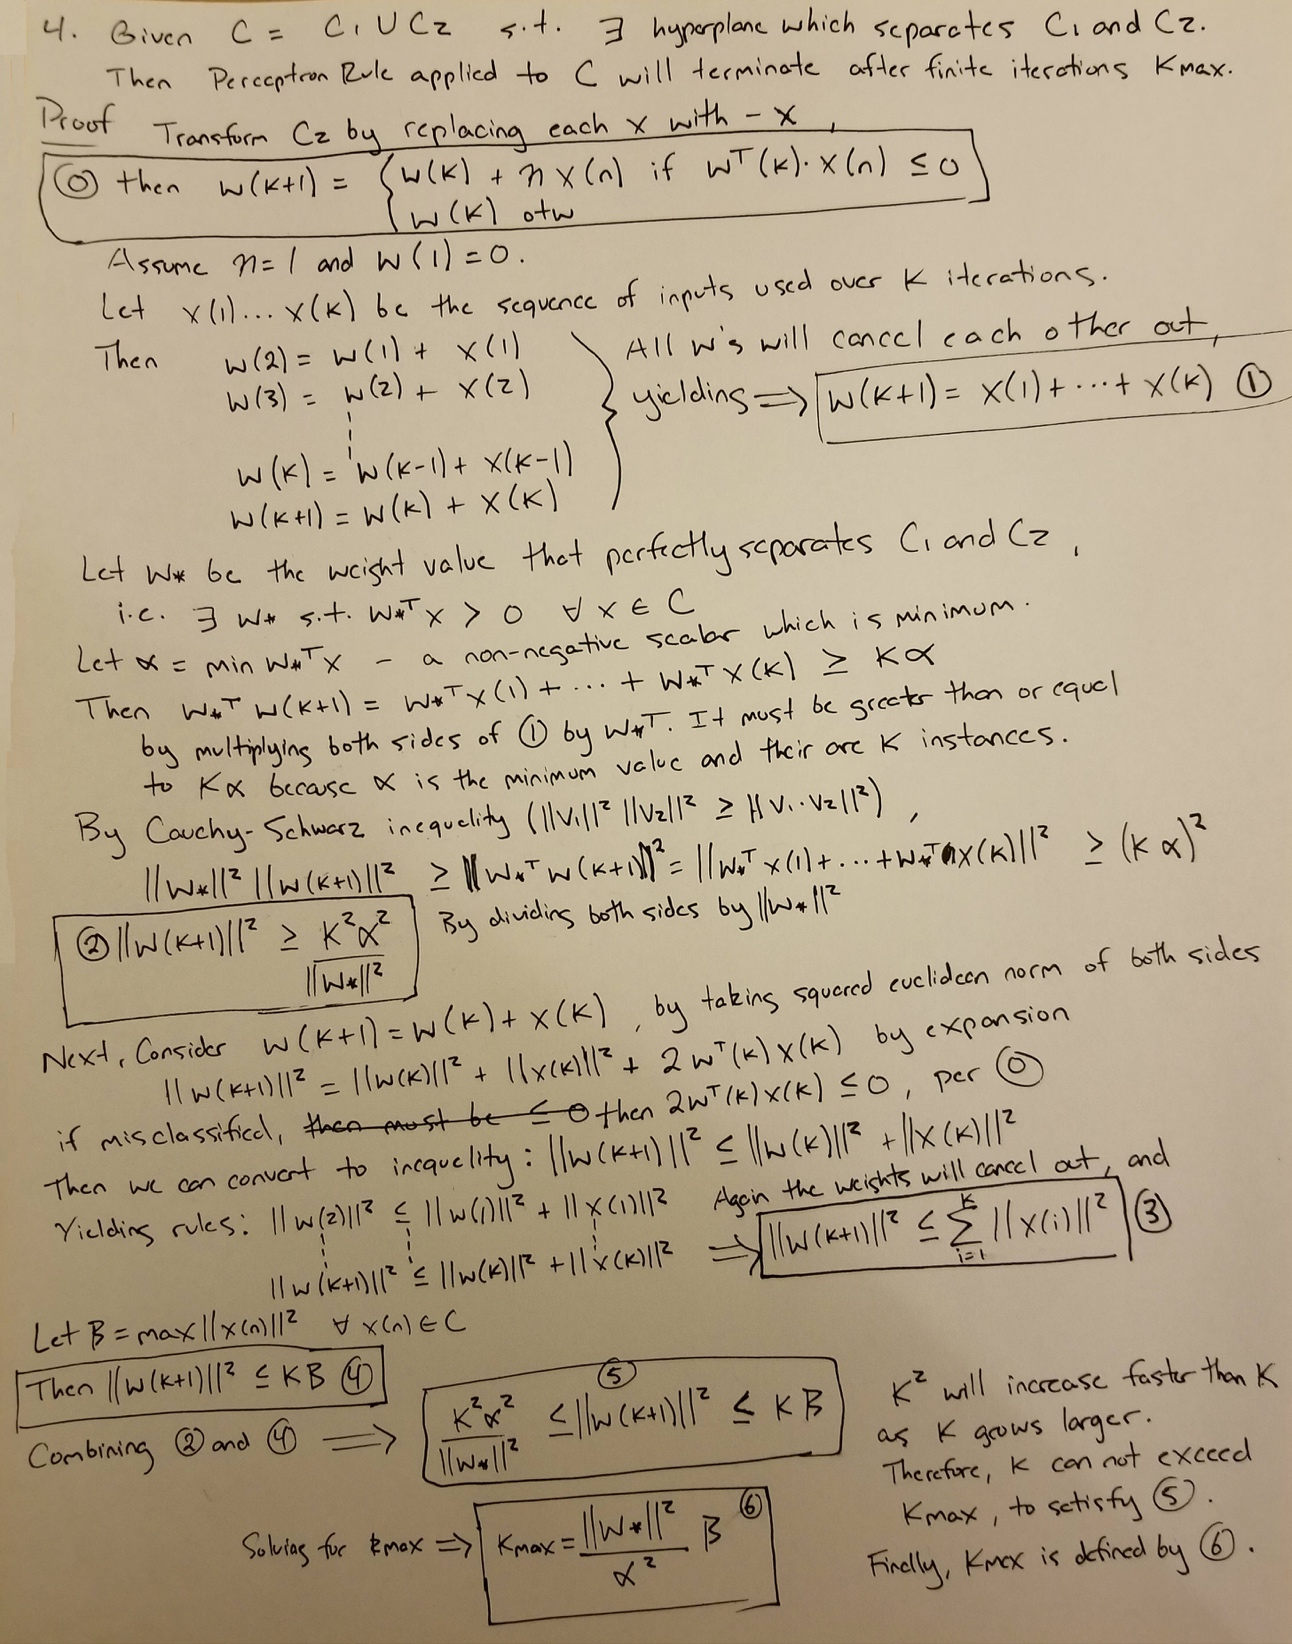 4. Given C = C1 ∪ C2 s.t. ∃ hyperplane which separates C1 and C2.
Then Perceptron Rule applied to C will terminate after finite iterations Kmax.
Proof Transform C2 by replacing each x with -x,
⓪ then w(k+1) = { w(k) + η x(n) if wᵀ(k)·x(n) ≤ 0
w(k) otw
Assume η=1 and w(1)=0.
Let x(1)...x(k) be the sequence of inputs used over K iterations.
Then w(2) = w(1) + x(1)
w(3) = w(2) + x(2)
w(k) = w(k-1) + x(k-1)
w(k+1) = w(k) + x(k)
} All w's will cancel each other out,
yielding ⟹ w(k+1) = x(1) + ... + x(k) ①
Let w* be the weight value that perfectly separates C1 and C2,
i.e. ∃ w* s.t. w*ᵀx > 0 ∀ x ∈ C
Let α = min w*ᵀx - a non-negative scalar which is minimum.
Then w*ᵀ w(k+1) = w*ᵀx(1) + ... + w*ᵀx(k) ≥ Kα
by multiplying both sides of ① by w*ᵀ. It must be greater than or equal
to Kα because α is the minimum value and their are K instances.
By Cauchy-Schwarz inequality (||v1||² ||v2||² ≥ ||v1·v2||²),
||w*||² ||w(k+1)||² ≥ ||w*ᵀ w(k+1)||² = ||w*ᵀx(1) + ... + w*ᵀx(k)||² ≥ (kα)²
② ||w(k+1)||² ≥ K²α² / ||w*||² By dividing both sides by ||w*||²
Next, Consider w(k+1) = w(k) + x(k), by taking squared euclidean norm of both sides
||w(k+1)||² = ||w(k)||² + ||x(k)||² + 2wᵀ(k)x(k) by expansion
if misclassified, then must be ≤ 0 then 2wᵀ(k)x(k) ≤ 0, per ⓪
Then we can convert to inequality: ||w(k+1)||² ≤ ||w(k)||² + ||x(k)||²
Yielding rules: ||w(2)||² ≤ ||w(1)||² + ||x(1)||² Again the weights will cancel out, and
||w(k+1)||² ≤ ||w(k)||² + ||x(k)||² ⟹ ||w(k+1)||² ≤ Σᵢ₌₁ᴷ ||x(i)||² ③
Let B = max ||x(n)||² ∀ x(n) ∈ C
Then ||w(k+1)||² ≤ KB ④
Combining ② and ④ ⟹ K²α² / ||w*||² ≤ ||w(k+1)||² ≤ KB ⑤
K² will increase faster than K
as K grows larger.
Therefore, K can not exceed
Kmax, to satisfy ⑤.
Finally, Kmax is defined by ⑥.
Solving for kmax ⟹ Kmax = ||w*||² / α² B ⑥